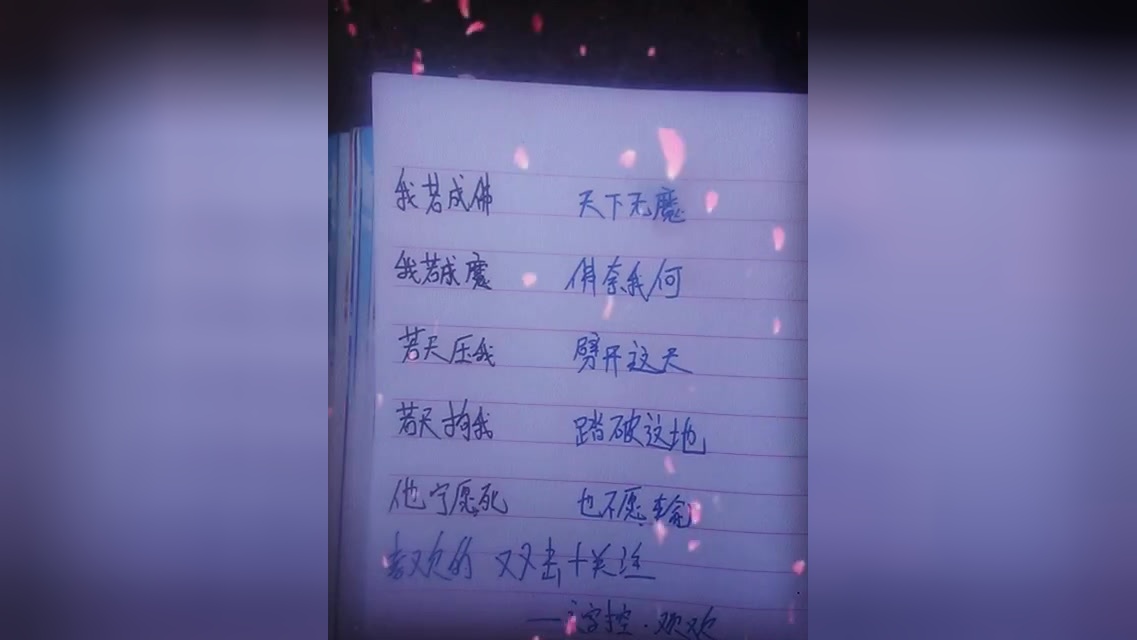 我若成佛 天下无魔
我若成魔 佛奈我何
若天压我 劈开这天
若天拘我 踏破这地
他宁愿死 也不愿输
喜欢的 双击+关注
——字控·欢欢